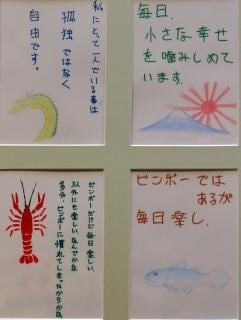 私にとって一人でいる事は
孤独ではなく
自由です。
毎日、
小さな幸せ
を噛みしめて
います。
ビンボーだけど毎日楽しい、
以外にも楽しい、なんでかな
多分、ビンボーに慣れてしまったからかな
ビンボーでは
あるが
毎日楽し、